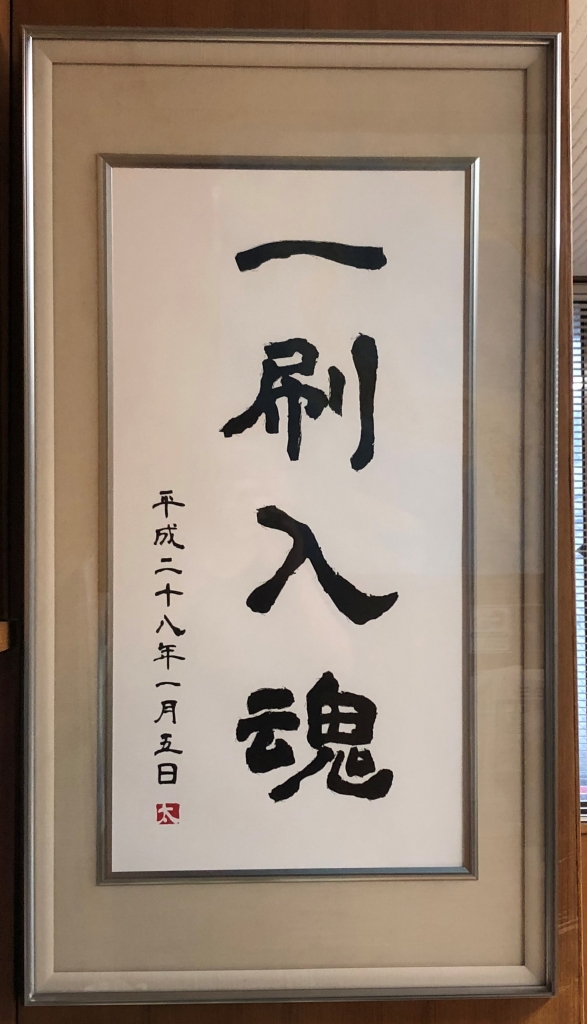 一刷入魂
平成二十八年一月五日
太